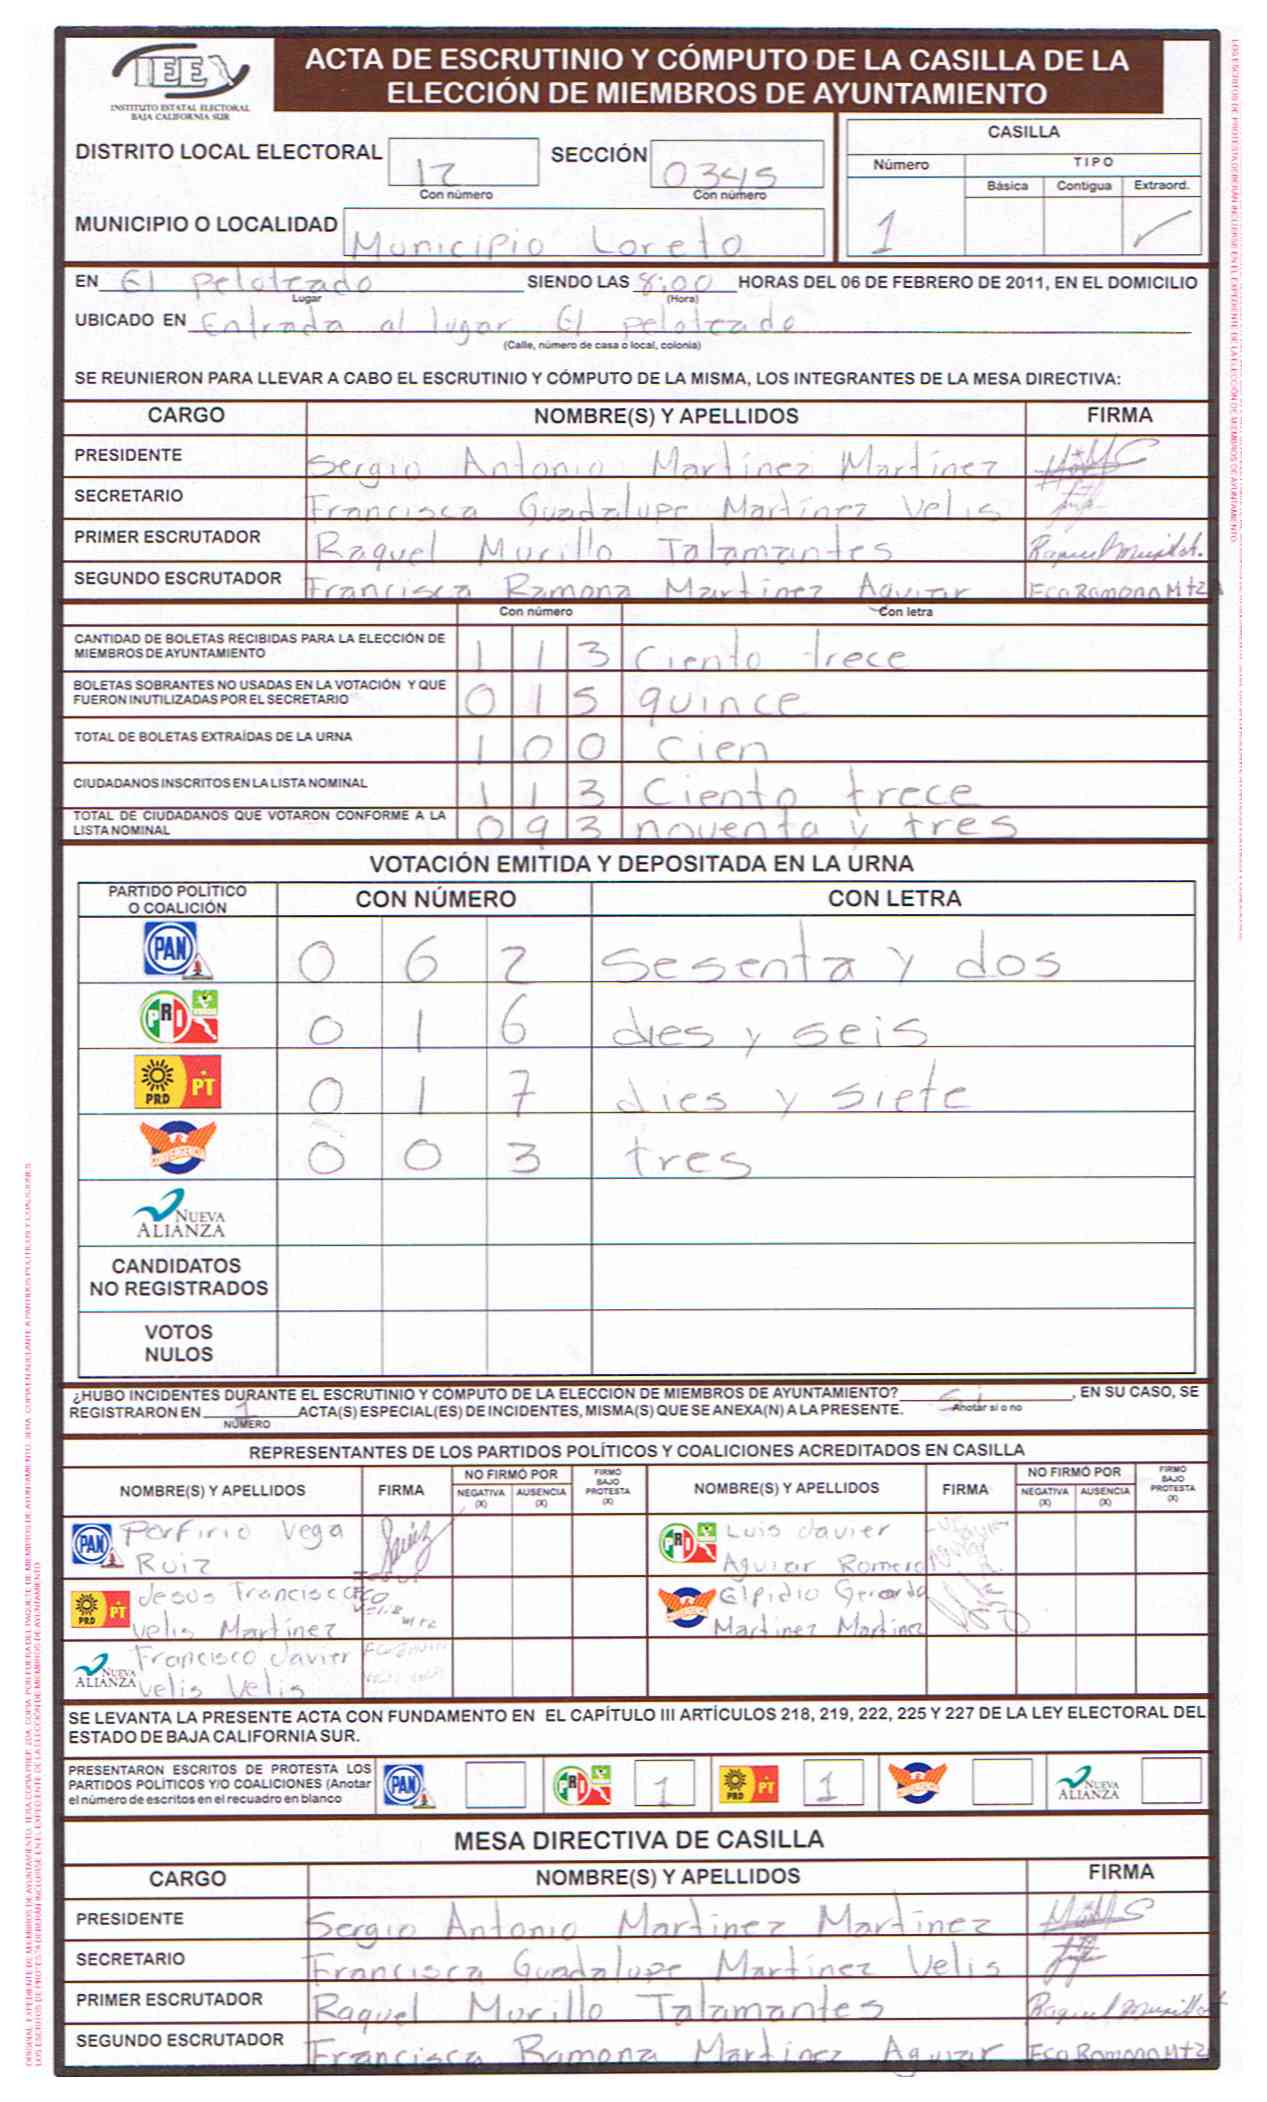 IEE
INSTITUTO ESTATAL ELECTORAL
BAJA CALIFORNIA SUR
ACTA DE ESCRUTINIO Y CÓMPUTO DE LA CASILLA DE LA
ELECCIÓN DE MIEMBROS DE AYUNTAMIENTO
DISTRITO LOCAL ELECTORAL 12 SECCIÓN 0345
Con número Con número
MUNICIPIO O LOCALIDAD Municipio Loreto
CASILLA
Número TIPO
Básica Contigua Extraord.
1 ✓
EN El peloteado SIENDO LAS 8:00 HORAS DEL 06 DE FEBRERO DE 2011, EN EL DOMICILIO
Lugar (Hora)
UBICADO EN Entrada al lugar El peloteado
(Calle, número de casa o local, colonia)
SE REUNIERON PARA LLEVAR A CABO EL ESCRUTINIO Y CÓMPUTO DE LA MISMA, LOS INTEGRANTES DE LA MESA DIRECTIVA:
CARGO NOMBRE(S) Y APELLIDOS FIRMA
PRESIDENTE Sergio Antonio Martínez Martínez
SECRETARIO Francisca Guadalupe Martínez Velis
PRIMER ESCRUTADOR Raquel Murillo Talamantes Raquel Murillo t.
SEGUNDO ESCRUTADOR Francisca Ramona Martínez Aguiar Fca Ramona Mtz A
Con número Con letra
CANTIDAD DE BOLETAS RECIBIDAS PARA LA ELECCIÓN DE
MIEMBROS DE AYUNTAMIENTO 1 1 3 Ciento trece
BOLETAS SOBRANTES NO USADAS EN LA VOTACIÓN Y QUE
FUERON INUTILIZADAS POR EL SECRETARIO 0 1 5 quince
TOTAL DE BOLETAS EXTRAÍDAS DE LA URNA 1 0 0 Cien
CIUDADANOS INSCRITOS EN LA LISTA NOMINAL 1 1 3 Ciento trece
TOTAL DE CIUDADANOS QUE VOTARON CONFORME A LA
LISTA NOMINAL 0 9 3 noventa y tres
VOTACIÓN EMITIDA Y DEPOSITADA EN LA URNA
PARTIDO POLÍTICO
O COALICIÓN CON NÚMERO CON LETRA
PAN 0 6 2 Sesenta y dos
PRI VERDE 0 1 6 dies y seis
PRD PT 0 1 7 dies y siete
CONVERGENCIA 0 0 3 tres
NUEVA
ALIANZA
CANDIDATOS
NO REGISTRADOS
VOTOS
NULOS
¿HUBO INCIDENTES DURANTE EL ESCRUTINIO Y CÓMPUTO DE LA ELECCIÓN DE MIEMBROS DE AYUNTAMIENTO? Si, EN SU CASO, SE
REGISTRARON EN 1 ACTA(S) ESPECIAL(ES) DE INCIDENTES, MISMA(S) QUE SE ANEXA(N) A LA PRESENTE. Anotar si o no
NÚMERO
REPRESENTANTES DE LOS PARTIDOS POLÍTICOS Y COALICIONES ACREDITADOS EN CASILLA
NOMBRE(S) Y APELLIDOS FIRMA NO FIRMÓ POR NEGATIVA (X) AUSENCIA (X) FIRMÓ BAJO PROTESTA (X) NOMBRE(S) Y APELLIDOS FIRMA NO FIRMÓ POR NEGATIVA (X) AUSENCIA (X) FIRMÓ BAJO PROTESTA (X)
PAN Porfirio Vega PRI Luis Javier
Ruiz Aguiar Romero
PRD PT Jesus Francisco Elpidio Gerardo
Velis Martínez Martinez Martinez
NUEVA ALIANZA Francisco Javier
Velis Velis
SE LEVANTA LA PRESENTE ACTA CON FUNDAMENTO EN EL CAPÍTULO III ARTÍCULOS 218, 219, 222, 225 Y 227 DE LA LEY ELECTORAL DEL
ESTADO DE BAJA CALIFORNIA SUR.
PRESENTARON ESCRITOS DE PROTESTA LOS
PARTIDOS POLÍTICOS Y/O COALICIONES (Anotar
el número de escritos en el recuadro en blanco
PAN PRI 1 PRD PT 1 NUEVA ALIANZA
MESA DIRECTIVA DE CASILLA
CARGO NOMBRE(S) Y APELLIDOS FIRMA
PRESIDENTE Sergio Antonio Martinez Martinez
SECRETARIO Francisca Guadalupe Martínez Velis
PRIMER ESCRUTADOR Raquel Murillo Talamantes Raquel Murillo t
SEGUNDO ESCRUTADOR Francisca Ramona Martínez Aguiar Fca Ramona Mtz A
LOS ESCRITOS DE PROTESTA DEBERÁN INCLUIRSE EN EL EXPEDIENTE DE LA ELECCIÓN DE MIEMBROS DE AYUNTAMIENTO